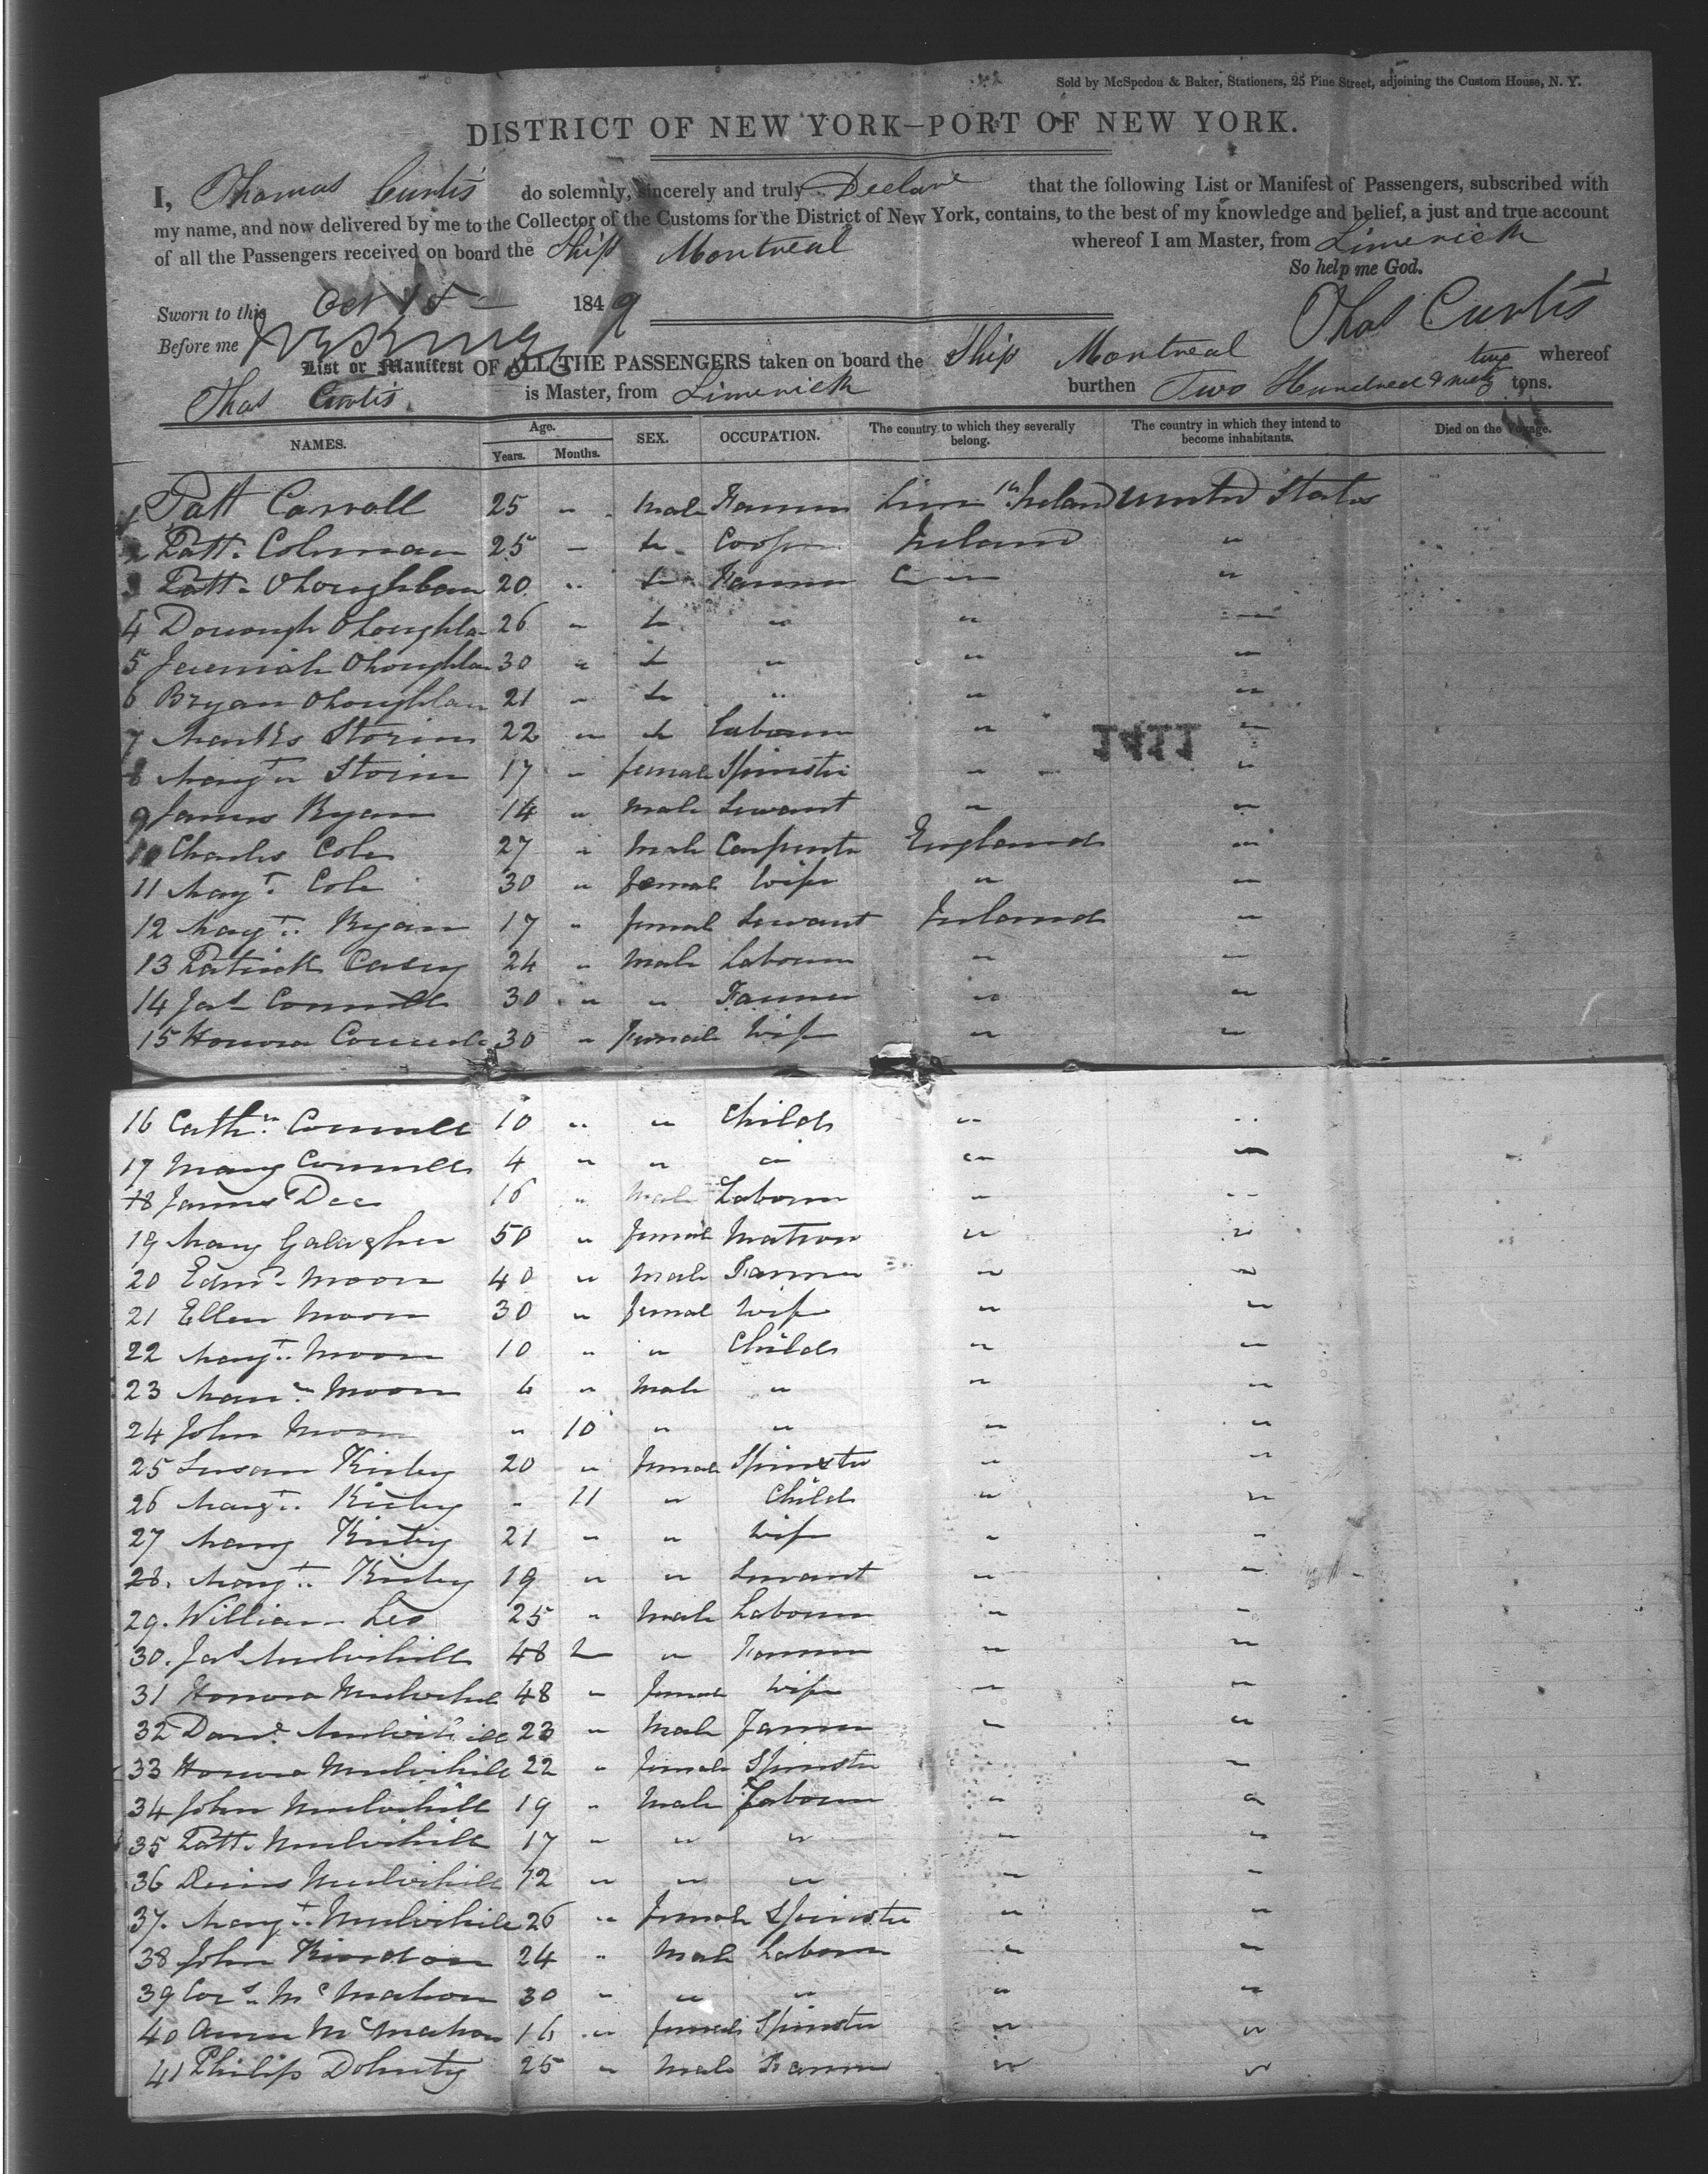 Sold by McSpedon & Baker, Stationers, 25 Pine Street, adjoining the Custom House, N. Y.
DISTRICT OF NEW YORK—PORT OF NEW YORK.
I, Thomas Curtis do solemnly, sincerely and truly Declare that the following List or Manifest of Passengers, subscribed with
my name, and now delivered by me to the Collector of the Customs for the District of New York, contains, to the best of my knowledge and belief, a just and true account
of all the Passengers received on board the Ship Montreal whereof I am Master, from Limerick
So help me God.
Sworn to this Oct 15 1849
Thos Curtis
Before me
List or Manifest OF ALL THE PASSENGERS taken on board the Ship Montreal whereof
Thos Curtis is Master, from Limerick burthen Two Hundred & ninety two tons.
NAMES. Age. Years. Months. SEX. OCCUPATION. The country to which they severally belong. The country in which they intend to become inhabitants. Died on the Voyage.
1 Patt Carroll 25 " Male Farmer Ireland United States
2 Patt. Colman 25 " Cooper Ireland "
3 Patt. OLoughlan 20 " Farmer "
4 Donough OLoughlan 26 " " " "
5 Jeremiah OLoughlan 30 " " " "
6 Bryan OLoughlan 21 " " " "
7 22 " Labourer " "
8 Margt 17 " female Spinster " "
9 James Ryan 14 " Male Servant " "
10 Charles Cole 27 " Male Carpenter England "
11 Margt. Cole 30 " female Wife " "
12 Margt. Ryan 17 " female Servant Ireland "
13 Patrick Casey 24 " Male Labourer " "
14 Jas Connell 30 " " Farmer " "
15 Honora Connell 30 " Female Wife " "
16 Cathn. Connell 10 " " Child " "
17 Mary Connell 4 " " " " "
18 James Dee 16 " Male Labourer " "
19 Mary Galagher 50 " female Matron " "
20 Edmd. Moon 40 " Male Farmer " "
21 Ellen Moon 30 " female Wife " "
22 Margt. Moon 10 " " Child " "
23 Moon 6 " Male " " "
24 John Moon " 10 " " " "
25 Susan Kirby 20 " female Spinster " "
26 Margt. Kirby " 11 " Child " "
27 Mary Kirby 21 " " Wife " "
28. Margt. Kirby 19 " " Servant " "
29. William Leo 25 " Male Labourer " "
30. Jas Mulvihill 48 " Farmer " "
31 Honora Mulvihill 48 " female Wife " "
32 Danl. Mulvihill 23 " Male Farmer " "
33 Honora Mulvihill 22 " female Spinster " "
34 John Mulvihill 19 " Male Labourer " "
35 Patt. Mulvihill 17 " " " " "
36 Denis Mulvihill 12 " " " " "
37. Margt. Mulvihill 26 " Female Spinster " "
38 John 24 " Male Labourer " "
39 Cors. McMahon 30 " " " " "
40 Anne McMahon 16 " female Spinster " "
41 Philip Doherty 25 " Male Farmer " "